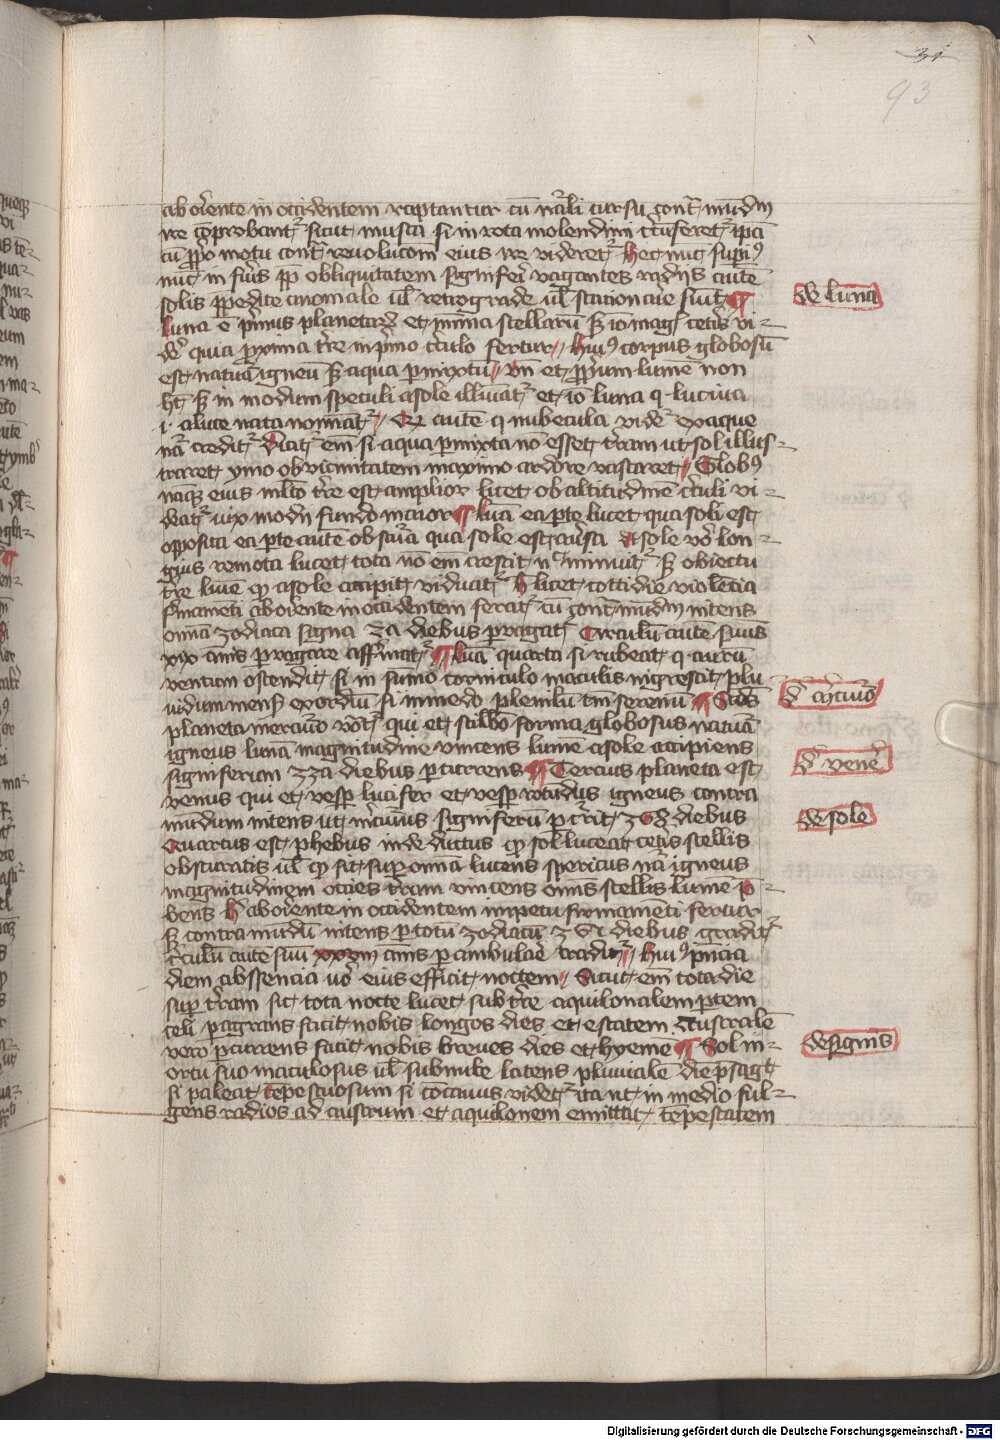 31
93
ab oriente in occidentem raptantur cū nāli cursu cont̄ mūdm
ire cōprobant᷑ sicut musca si in rota molendini circūferet᷑ ip̄a
cū pp̄o motu cont̄ reuolucōm eius ire videret᷑ Hec nūc supiꝰ
nūc inferiꝰ pp̄ obliquitatem signiferi vagantes radijs autē
solis p̄pedite anomale ul̄ retrograde ul̄ stationarie fiūt
de luna
Luna ē p̄mus planetarꝝ et mīma stellarū sꝫ iō maga᷑ cetīs vi-
det᷑ quia pxima t̄re in p̄mo circulo fertur Huiꝰ corpus globosū
est natura igneū sꝫ aqua pmixtū vn̄ et pp̄rium lumē non
hꝫ sꝫ in modum speculi a sole illūiat᷑ et iō luna q̄ lucina
.i. a luce nata noīnat᷑ Qꝫ autē q̄ nubecula videt᷑ ex aque
nā credit᷑ Dicat᷑ em̄ si aqua pmixta nō esset t̄ram ut sol illus-
traret ymo ob vicinitatem maximo ardore vastaret Globꝰ
nāqꝫ eius ml̄to t̄re est amplior licet ob altitudinē circuli vi-
deat᷑ uix modij fundo maior Lūa ea pte lucet qua soli est
opposita ea pte autē obscura qua sole est au̇sa A sole vo̅ lon-
gius remota lucet tota nō em̄ crescit nc̄ minuit᷑ sꝫ obiectu
t̄re lumē qd̄ a sole accipit viduat᷑ H̄ licet cottidie violēcia
firmameti ab oriente in occidentem ferat᷑ cū cont̄ mūdm nitens
om̄ia zodiaca signa 27 diebus pagrat᷑ Circulū autē suum
xix annis pagrare affirmat᷑ Lūa quarta si rubeat q̄ aurū
ventum ostendit si in sumo corniculo maculis nigrescit plu-
uidum mens̄ exordiū si in medo plenilū tm̄ serenū Scd̄s
d̄ mercurio
planeta mercurio vocat᷑ qui et stilbo forma globosus natura
igneus lunā magnitudine vincens lumē a sole accipiens
signiferum 339 diebus pcurrens Tercius planeta est
d̄ vener̄
venus qui et vesp̄ lucifer et vesp̄ rotūdus igneus contra
mūdum nitens ut mercurius signiferū pcurit 348 diebus
de sole
Quartus est phebus inde dictus qd̄ sol luceat cetis stellis
obscuratis ul̄ qd̄ sit sup̄ om̄ia lucens spericus nā igneus
magnitudinem octies t̄ram vincens om̄is stellis lumē p̄-
bens H̄ ab oriente in occidentem impetu firmamēti fertur
sꝫ contra mūdū nitens p totū zodiacū 365 diebus gradit᷑
Circulū autē suū xxviij annis pambulare tradit᷑ Huiꝰ pn̄cia
diem abssencia uo̅ eius efficit noctem Sicut em̄ tota die
sup̄ t̄ram sic tota nocte lucet sub t̄re aquilonalem ptem
celi pagrans facit nobis longos dies et estatem Australē
vero pcurrens facit nobis breues dies et hyeme Sol in-
de signis
ortu suo maculosus ul̄ sub nube latens pluuiale diē psagit
si paleat tēpestuosum si cōcauus videt᷑ ita ut in medio ful-
gens radios ad austrum et aquilonem emittat tēpestatem
Digitalisierung gefördert durch die Deutsche Forschungsgemeinschaft - DFG